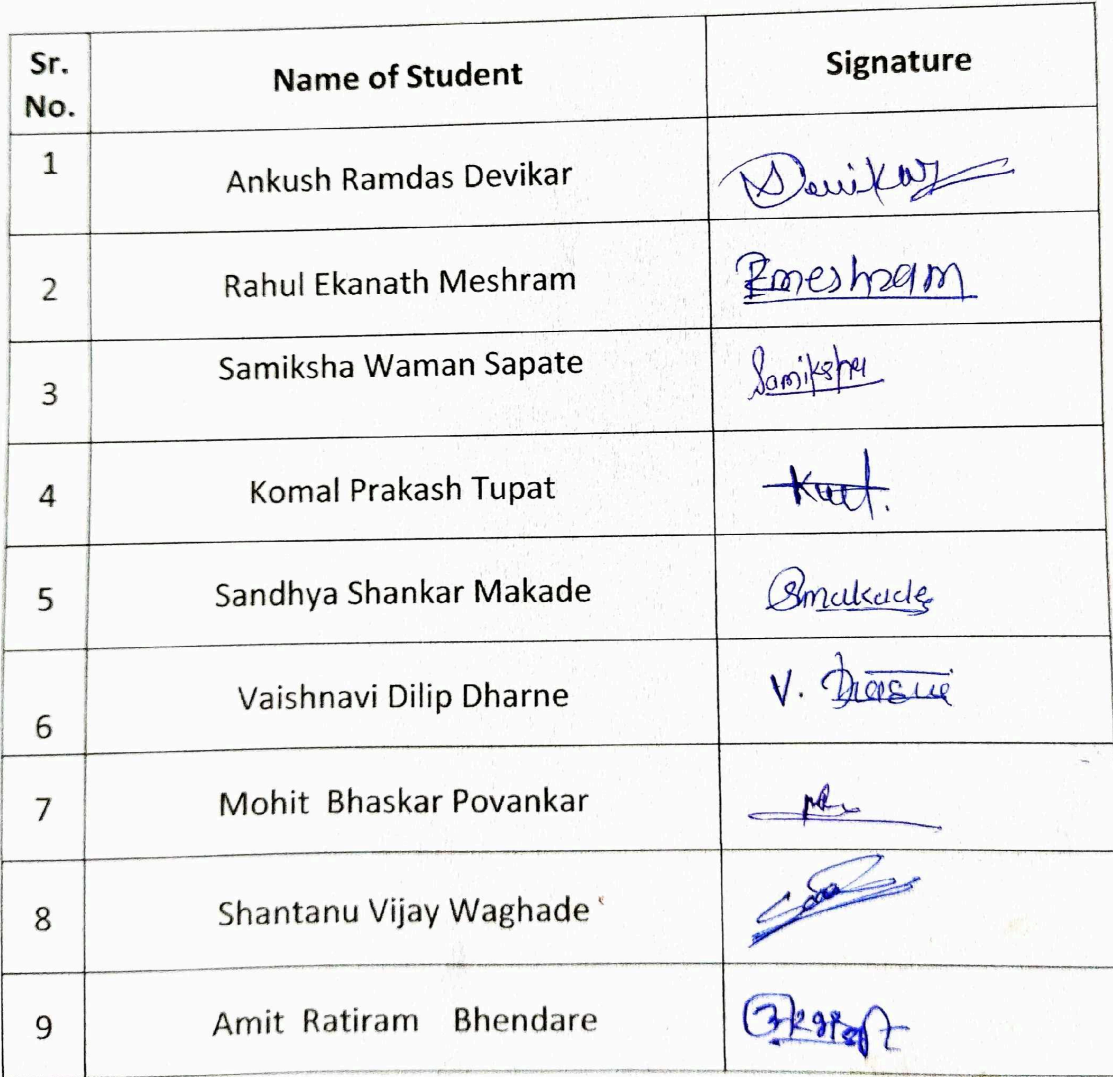 Sr. No. Name of Student Signature
1 Ankush Ramdas Devikar Devikar
2 Rahul Ekanath Meshram Rmeshram
3 Samiksha Waman Sapate Samiksha
4 Komal Prakash Tupat
5 Sandhya Shankar Makade Smakade
6 Vaishnavi Dilip Dharne V. Dharne
7 Mohit Bhaskar Povankar
8 Shantanu Vijay Waghade
9 Amit Ratiram Bhendare